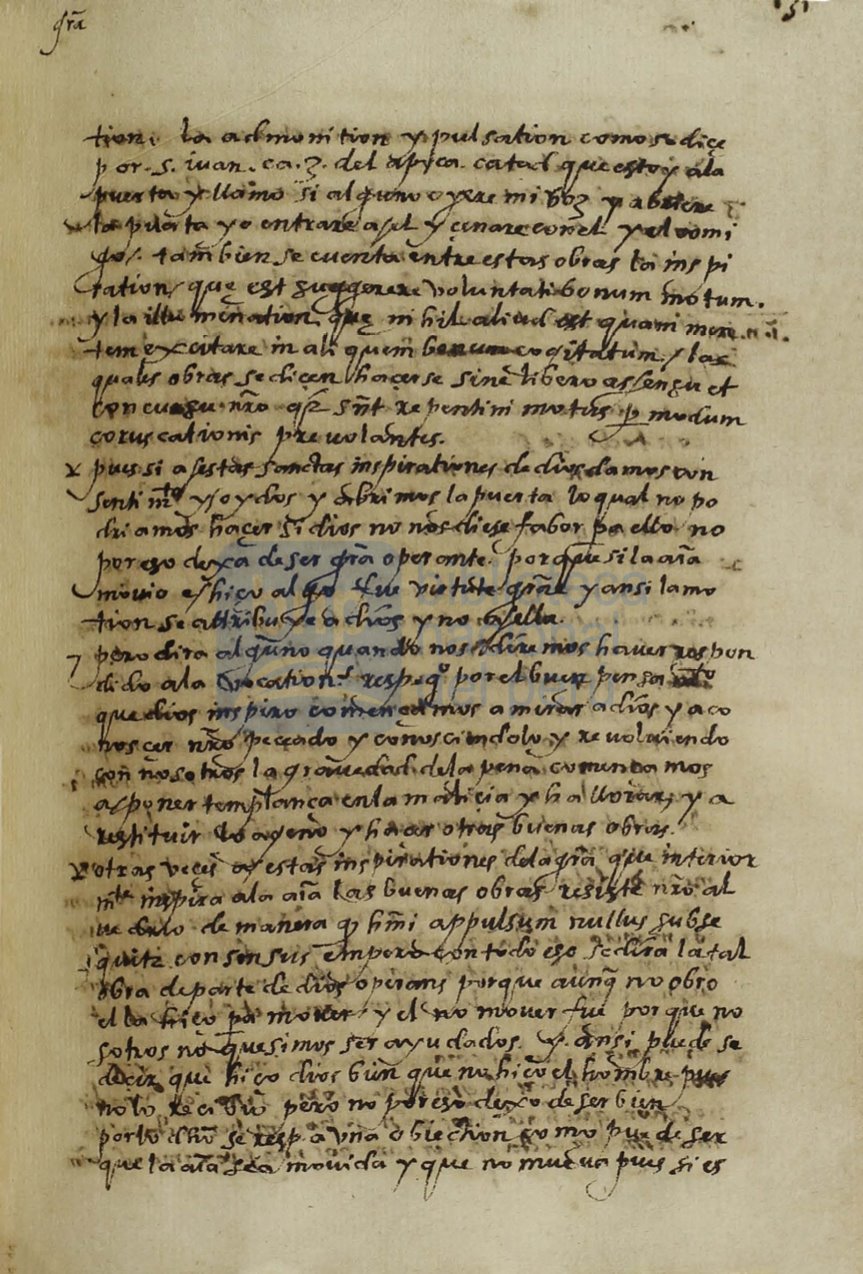 gr̃a
tion. la admonition y pulsation como se diçe
por .s. iuan. ca. 3. del apoca. cata d que estoy ala
puerta y llamo si alguno oyere mi voz y abriere
la puerta yo entrare a el y çenare con el y el comi
go/. tambien se cuenta entre estas obras la inspi
ration/ que est suggerere voluntati bonum motum.
y la illumination, que nihil aliud est quam men
tem excitare in aliquem bonum cogitatum,/ las
quales obras se diçen haçerse sine libero assensu et
concursu nr̃o q̃ sũt repentini motus p modum
coruscationis prevolantes.
pues si a estas sanctas inspirationes de dios damos con
sentimt̃o y oydos y abrimos la puerta lo qual no po
driamos haçer si dios no nos diese fabor pa ello no
por eso dexa de ser gr̃a operante. porque si la aĩa
movio e hiço algo fue virtute gratie y ansi la mo
tion se attribuye a dios y no a ella.
pero dira alguno quando nos diremos haver respon
dido ala vocation. respõ q̃ por el buen pensamt̃o
que dios inspiro començamos a mirar a dios y a co
noscer nr̃o peccado y conosciendolo y revolviendo
con nosotros la gravedad dela pena comensamos
a poner templança en la maliçia y ha llorar, y a
restituir lo ageno y haçer otras buenas obras.
otras veces a estas inspirationes dela gr̃a que interior
mt̃e inspira ala aĩa las buenas obras resiste nr̃o al
vedrio de manera q̃ hm̃i appulsum nullus subse
quitur consensus empero con todo eso se dira la tal
obra de parte de dios operans porque aunq̃ no obro
el la hiço pa mover y el no mover fue porque no
sotros no quesimos ser ayudados. y ansi puede se
deçir que hiço dios bien que no hiço el hombre pues
no lo reçibio pero no por eso dexo de ser bien
por lo dho se resp a vna obiection como puede ser
que la aĩa sea movida y que no mueva pues si es